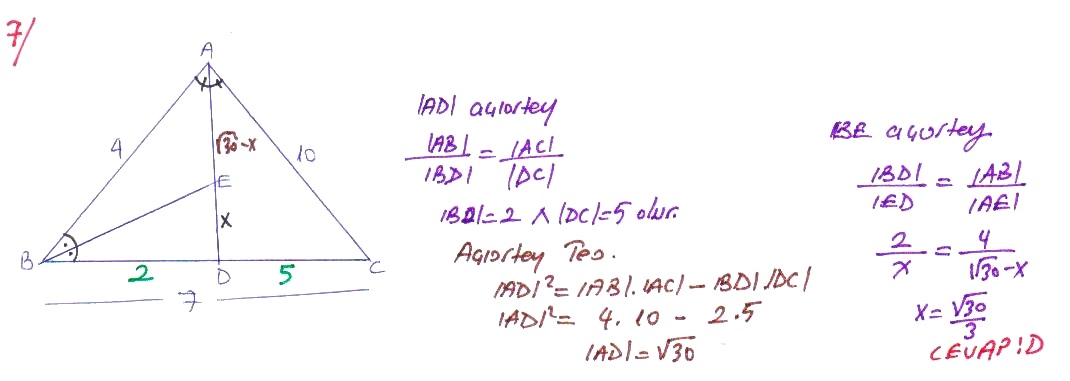 7/
A
4
10
√30-x
E
x
B
2
D
5
C
7
|AD| açıortay
|AB|/|BD| = |AC|/|DC|
|BD|=2 ∧ |DC|=5 olur.
Açıortay Teo.
|AD|²=|AB|.|AC|-|BD|.|DC|
|AD|²= 4.10 - 2.5
|AD|=√30
BE açıortay
|BD|/|ED = |AB|/|AE|
2/x = 4/√30-x
x=√30/3
CEVAP:D